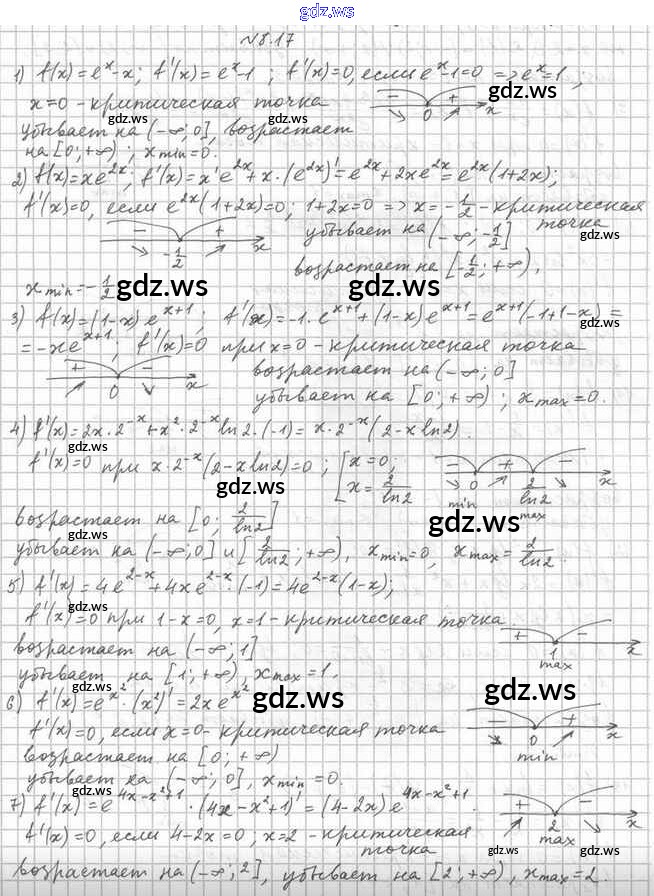 gdz.ws
№8.17
1) f(x)=eˣ-x; f'(x)=eˣ-1; f'(x)=0, если eˣ-1=0 => eˣ=1;
x=0 - критическая точка
− + 0 x
gdz.ws
убывает на (-∞;0], возрастает
gdz.ws
на [0;+∞); x min=0.
2) f(x)=xe²ˣ; f'(x)=x'e²ˣ+x·(e²ˣ)'=e²ˣ+2xe²ˣ=e²ˣ(1+2x);
gdz.ws
f'(x)=0, если e²ˣ(1+2x)=0; 1+2x=0 => x=-1/2 - критическая точка
− + -1/2 x
убывает на (-∞;-1/2]
gdz.ws
возрастает на [-1/2;+∞),
x min=-1/2
gdz.ws gdz.ws
3) f(x)=(1-x)eˣ⁺¹; f'(x)=-1·eˣ⁺¹+(1-x)eˣ⁺¹=eˣ⁺¹(-1+1-x)=
gdz.ws
=-xeˣ⁺¹; f'(x)=0 при x=0 - критическая точка
gdz.ws
+ − 0 x
возрастает на (-∞;0]
убывает на [0;+∞); x max=0.
4) f'(x)=2x·2⁻ˣ+x²·2⁻ˣln2·(-1)=x·2⁻ˣ(2-xln2).
gdz.ws
f'(x)=0 при x·2⁻ˣ(2-xln2)=0; [x=0; x=2/ln2
− + − 0 2/ln2 x
min max
возрастает на [0; 2/ln2]
gdz.ws gdz.ws
убывает на (-∞;0] и [2/ln2;+∞), x min=0, x max=2/ln2.
5) f'(x)=4e²⁻ˣ+4xe²⁻ˣ·(-1)=4e²⁻ˣ(1-x);
gdz.ws
f'(x)=0 при 1-x=0, x=1 - критическая точка
+ − 1 x
max
возрастает на (-∞;1]
убывает на [1;+∞), x max=1.
gdz.ws gdz.ws gdz.ws
6) f'(x)=e^x²·(x²)'=2xe^x²
f'(x)=0, если x=0 - критическая точка
− + 0 x
min
возрастает на [0;+∞)
убывает на (-∞;0], x min=0.
gdz.ws
7) f'(x)=e^4x-x²+1·(4x-x²+1)'=(4-2x)e^4x-x²+1.
gdz.ws
f'(x)=0, если 4-2x=0; x=2 - критическая точка
+ − 2 x
max
gdz.ws
возрастает на (-∞;2], убывает на [2;+∞), x max=2.
gdz.ws